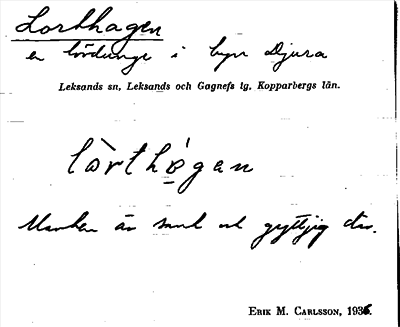 Lorthagen
en lördunge i byn Djura
Leksands sn, Leksands och Gagnefs tg, Kopparbergs län.
lòrthágan
Marken är sank och gyttjig där.
ERIK M. CARLSSON, 1936.